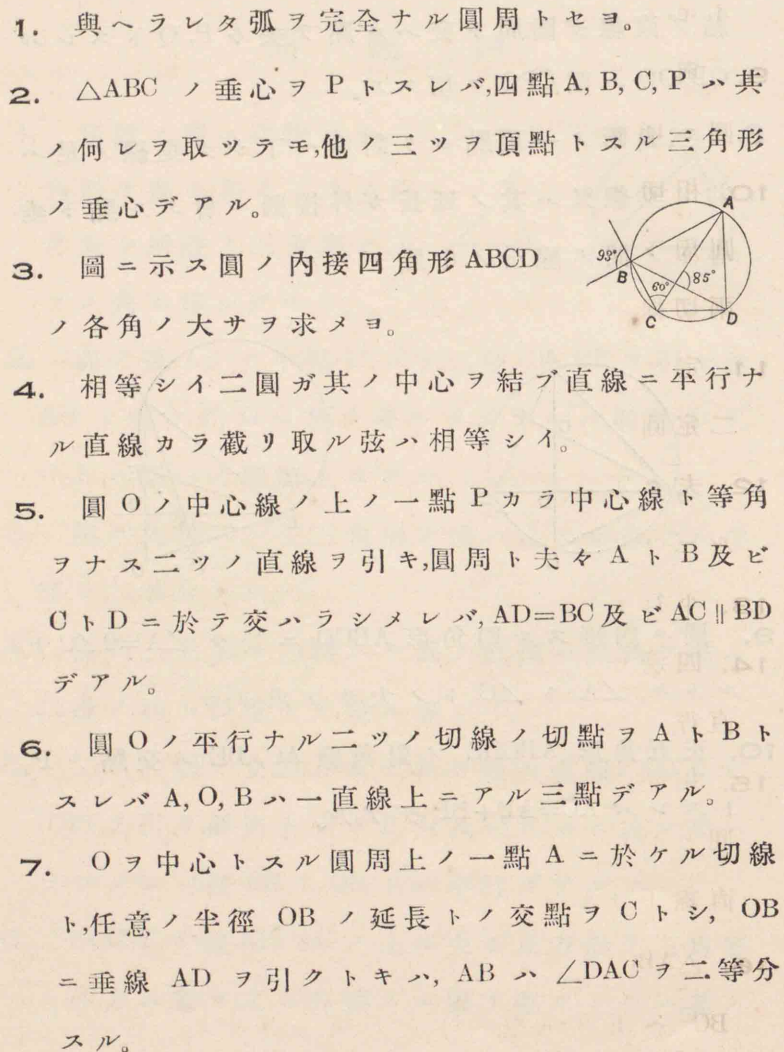 1. 與ヘラレタ弧ヲ完全ナル圓周トセヨ。
2. △ABC ノ垂心ヲ P トスレバ,四點 A, B, C, P ハ其
ノ何レヲ取ツテモ,他ノ三ツヲ頂點トスル三角形
ノ垂心デアル。
3. 圖ニ示ス圓ノ內接四角形 ABCD
ノ各角ノ大サヲ求メヨ。
A
93°
B
60°
85°
C
D
4. 相等シイ二圓ガ其ノ中心ヲ結ブ直線ニ平行ナ
ル直線カラ截リ取ル弦ハ相等シイ。
5. 圓 O ノ中心線ノ上ノ一點 P カラ中心線ト等角
ヲナス二ツノ直線ヲ引キ,圓周ト夫々 A ト B 及ビ
C ト D ニ於テ交ハラシメレバ, AD=BC 及ビ AC∥BD
デアル。
6. 圓 O ノ平行ナル二ツノ切線ノ切點ヲ A ト B ト
スレバ A, O, B ハ一直線上ニアル三點デアル。
7. O ヲ中心トスル圓周上ノ一點 A ニ於ケル切線
ト,任意ノ半徑 OB ノ延長トノ交點ヲ C トシ, OB
ニ垂線 AD ヲ引クトキハ, AB ハ ∠DAC ヲ二等分
スル。